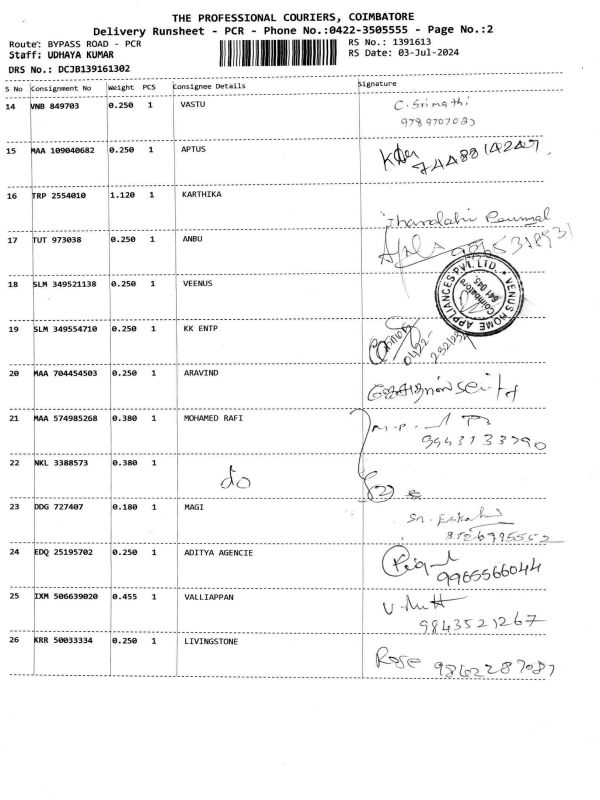 THE PROFESSIONAL COURIERS, COIMBATORE
Delivery Runsheet - PCR - Phone No.:0422-3505555 - Page No.:2
Route: BYPASS ROAD - PCR
RS No.: 1391613
Staff: UDHAYA KUMAR
RS Date: 03-Jul-2024
DRS No.: DCJB139161302
S No Consignment No Weight PCS Consignee Details Signature
14 VNB 849703 0.250 1 VASTU C. Srimathi
15 MAA 109040682 0.250 1 APTUS
16 TRP 2554010 1.120 1 KARTHIKA
17 TUT 973038 0.250 1 ANBU
18 SLM 349521138 0.250 1 VEENUS
VENUS HOME APPLIANCES PVT. LTD.
Coimbatore
641 045.
19 SLM 349554710 0.250 1 KK ENTP
0422-
20 MAA 704454503 0.250 1 ARAVIND
21 MAA 574985268 0.380 1 MOHAMED RAFI
9943133790
22 NKL 3388573 0.380 1 do
23 DDG 727407 0.180 1 MAGI
24 EDQ 25195702 0.250 1 ADITYA AGENCIE
9965566044
25 IXM 506639020 0.455 1 VALLIAPPAN
9843521267
26 KRR 50033334 0.250 1 LIVINGSTONE
Rose 9862287087